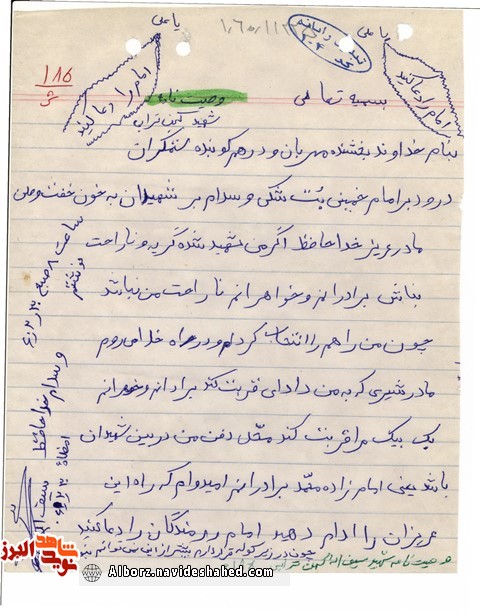 یا علی
یا علی
۱,۶۰,۱۱
امام را دعا کنید
امام را دعا کنید
۱۸۵
ش
بسمه تعالی
وصیت نامه
شهید
بنام خداوند بخشنده مهربان و درهم کوبنده ستمگران
درود بر امام خمینی بت شکن و سلام بر شهیدان به خون خفته وطن
مادر عزیز خداحافظ اگر من شهید شدم گریه و ناراحت
نباش برادرانم و خواهرانم ناراحت من نباشد
چون من راهم را انتخاب کردم و در راه خدا می روم
مادر شیری که به من دادای قربت کند برادرانم و خواهرانم
یک بیک مرا قربت کند محل دفن من در بین شهیدان
باشد یعنی امام زاده محمد برادرانم امیدوام که راه این
عزیزان را ادام دهید امام و رزمندگان را دعا کنند
چون در زیر گلوله قرار دارم بیشتر از این نمی توانم
وصیت نامه شهید سیف اله
ساعت ۸ صبح
نوشتم
و سلام خداحافظ
امضاء
سیف اله
شاهد
نوید
البرز
Alborz.navideshahed.com